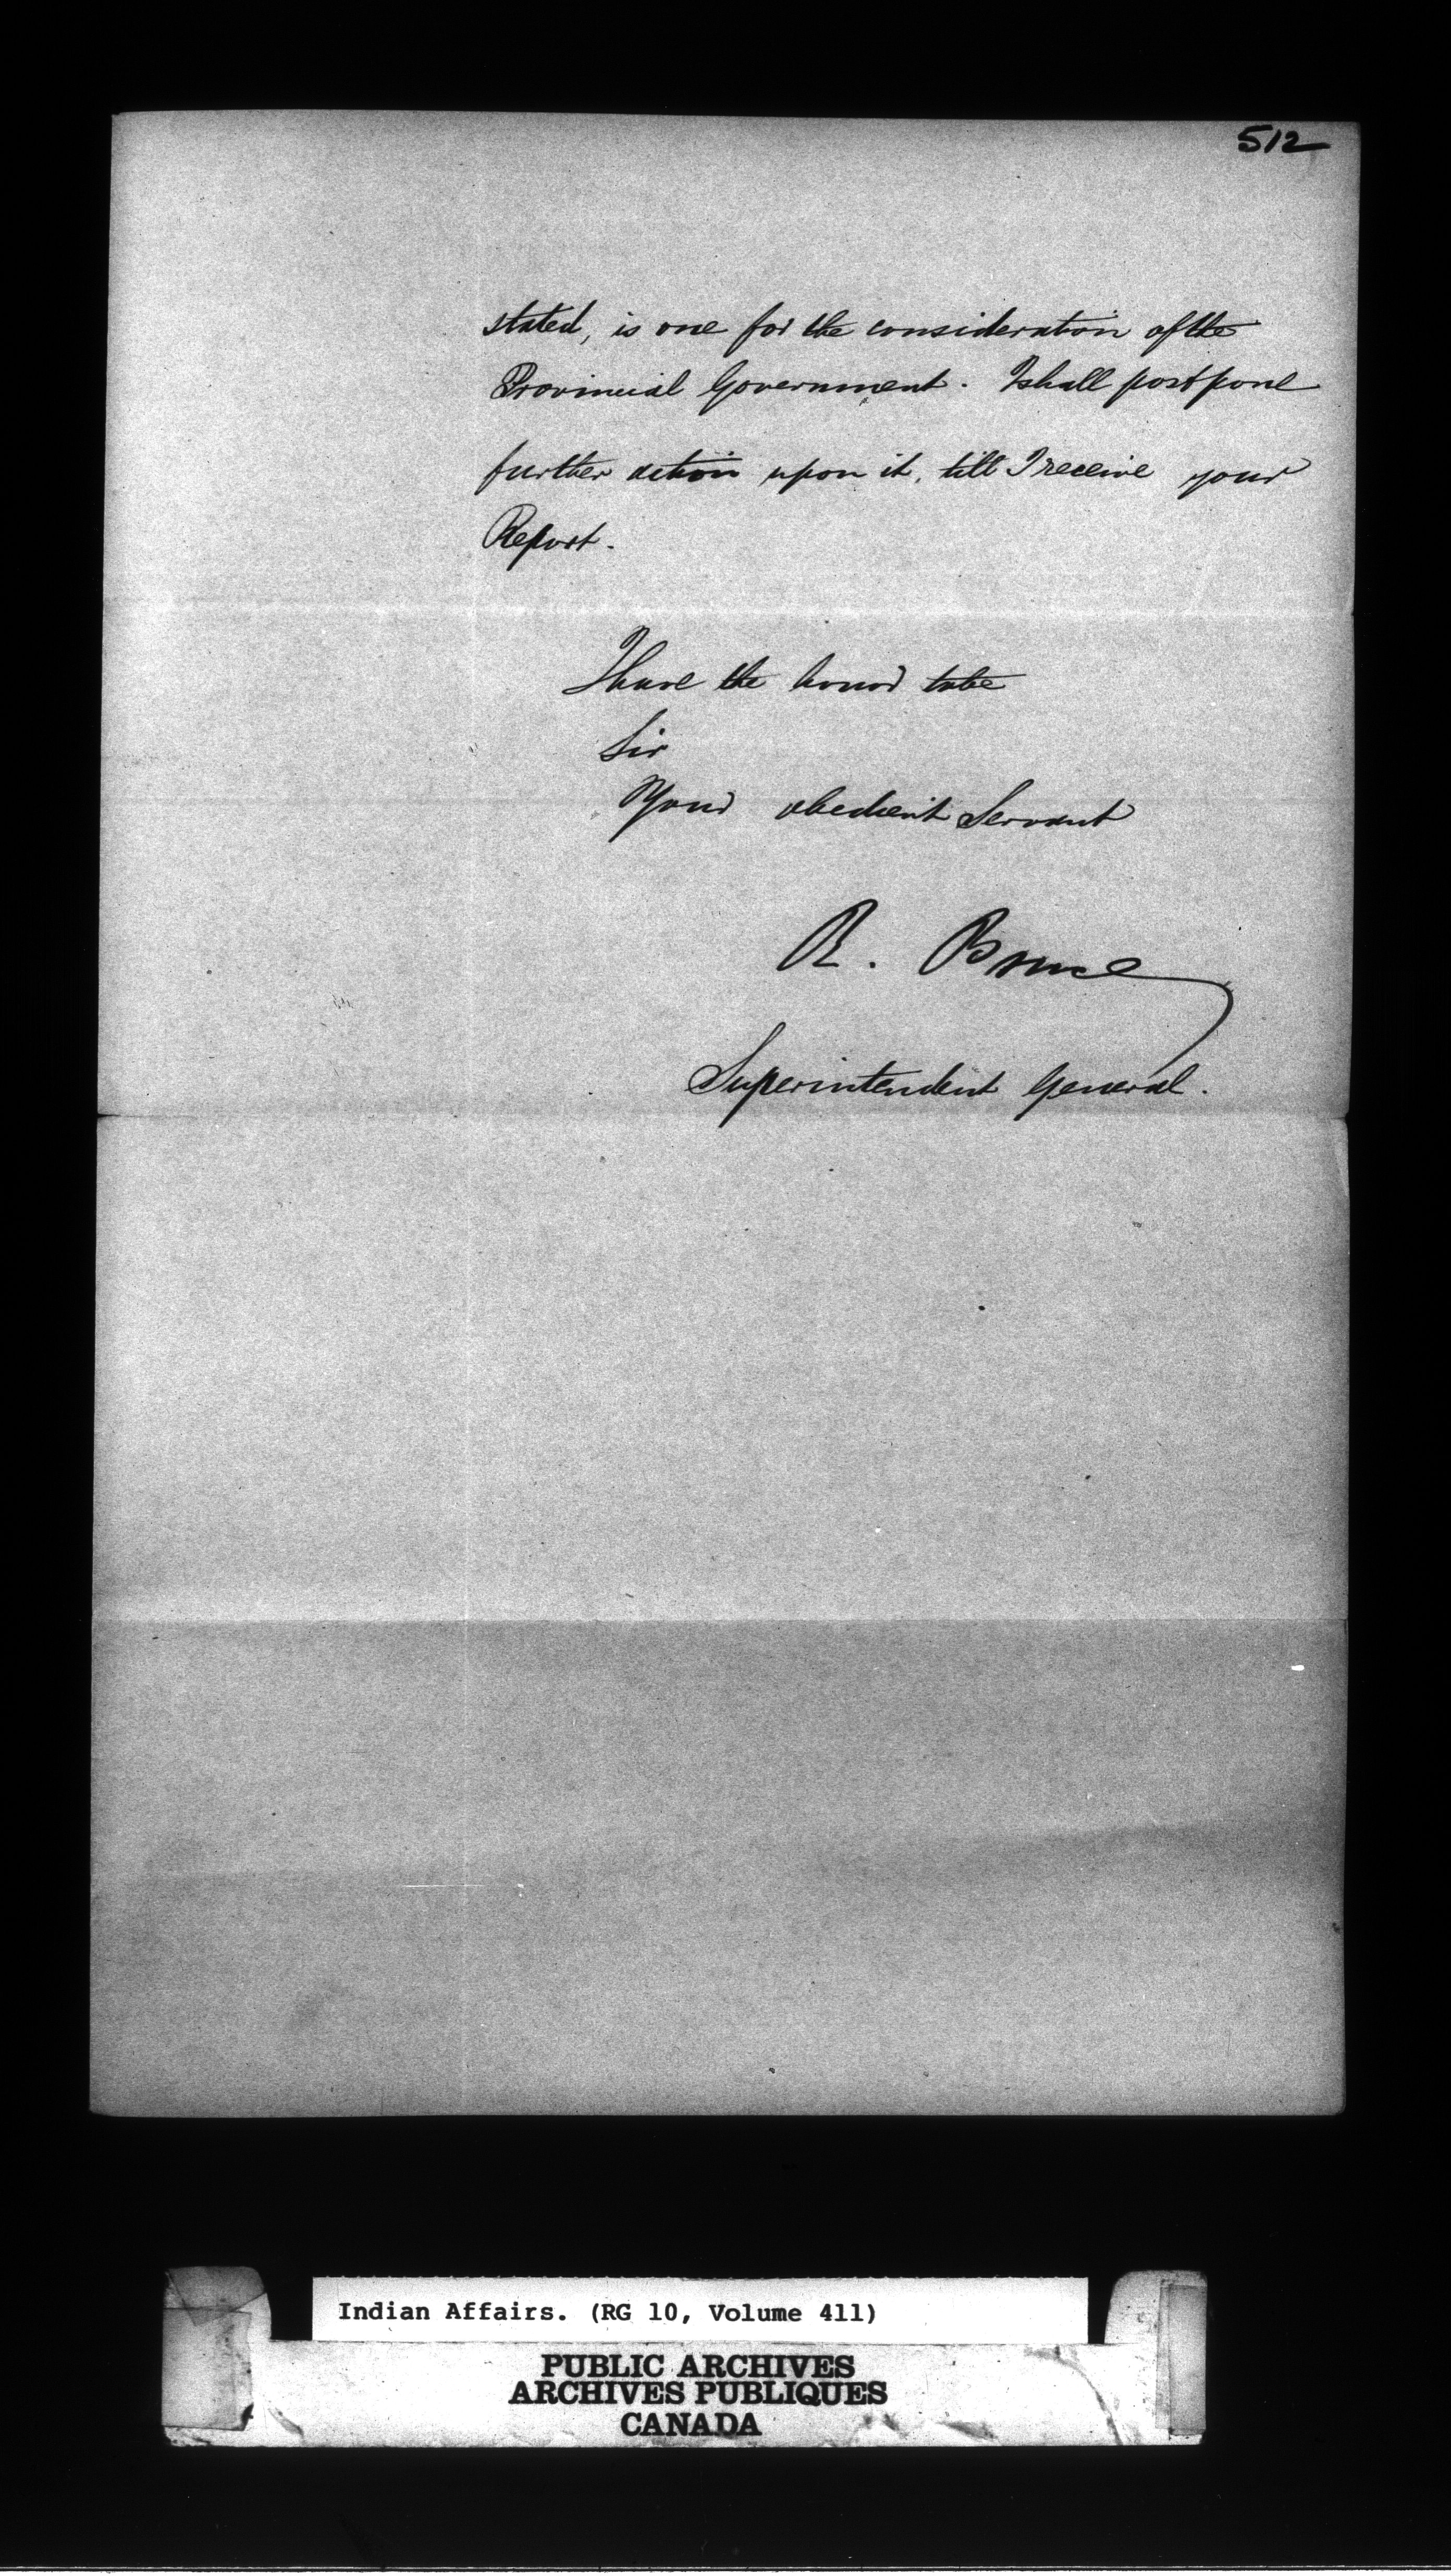 512
stated, is one for the consideration of the
Provincial Government. I shall postpone
further action upon it, till I receive your
Report.
I have the honor to be
Sir
Your obedient Servant
R. Bruce
Superintendent General.
Indian Affairs. (RG 10, Volume 411)
PUBLIC ARCHIVES
ARCHIVES PUBLIQUES
CANADA